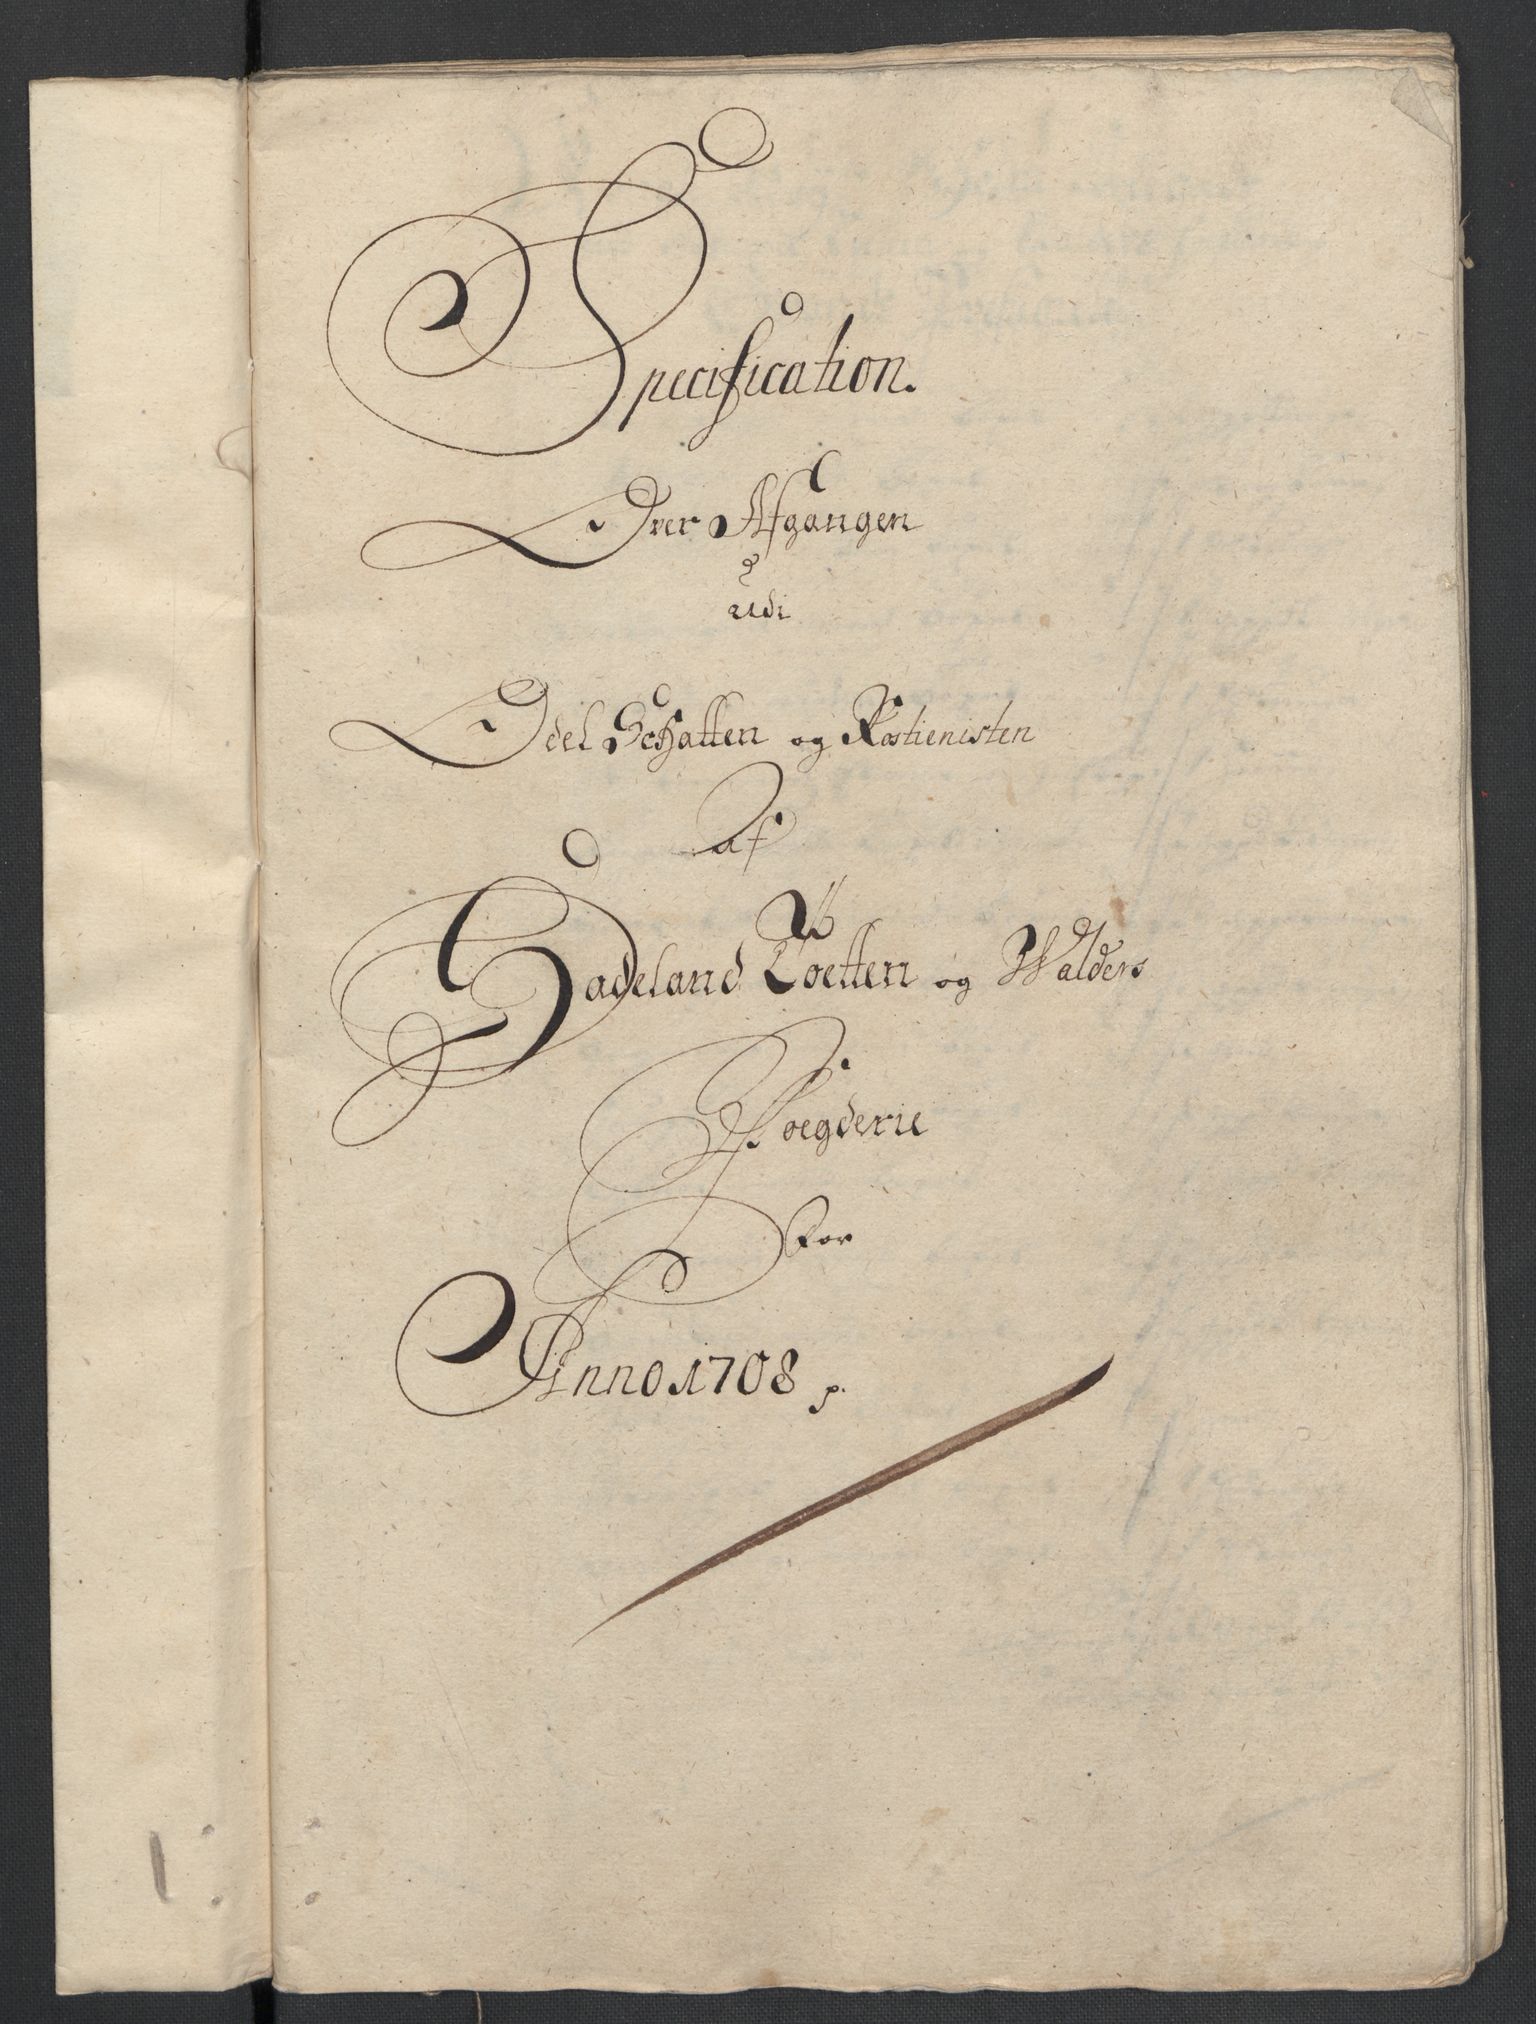 Specification.
Over Afgangen
udi
Odel Schatten og Rostienisten
af
Hadeland Toetten og Walders
Foegderie
For
Anno 1708 p.